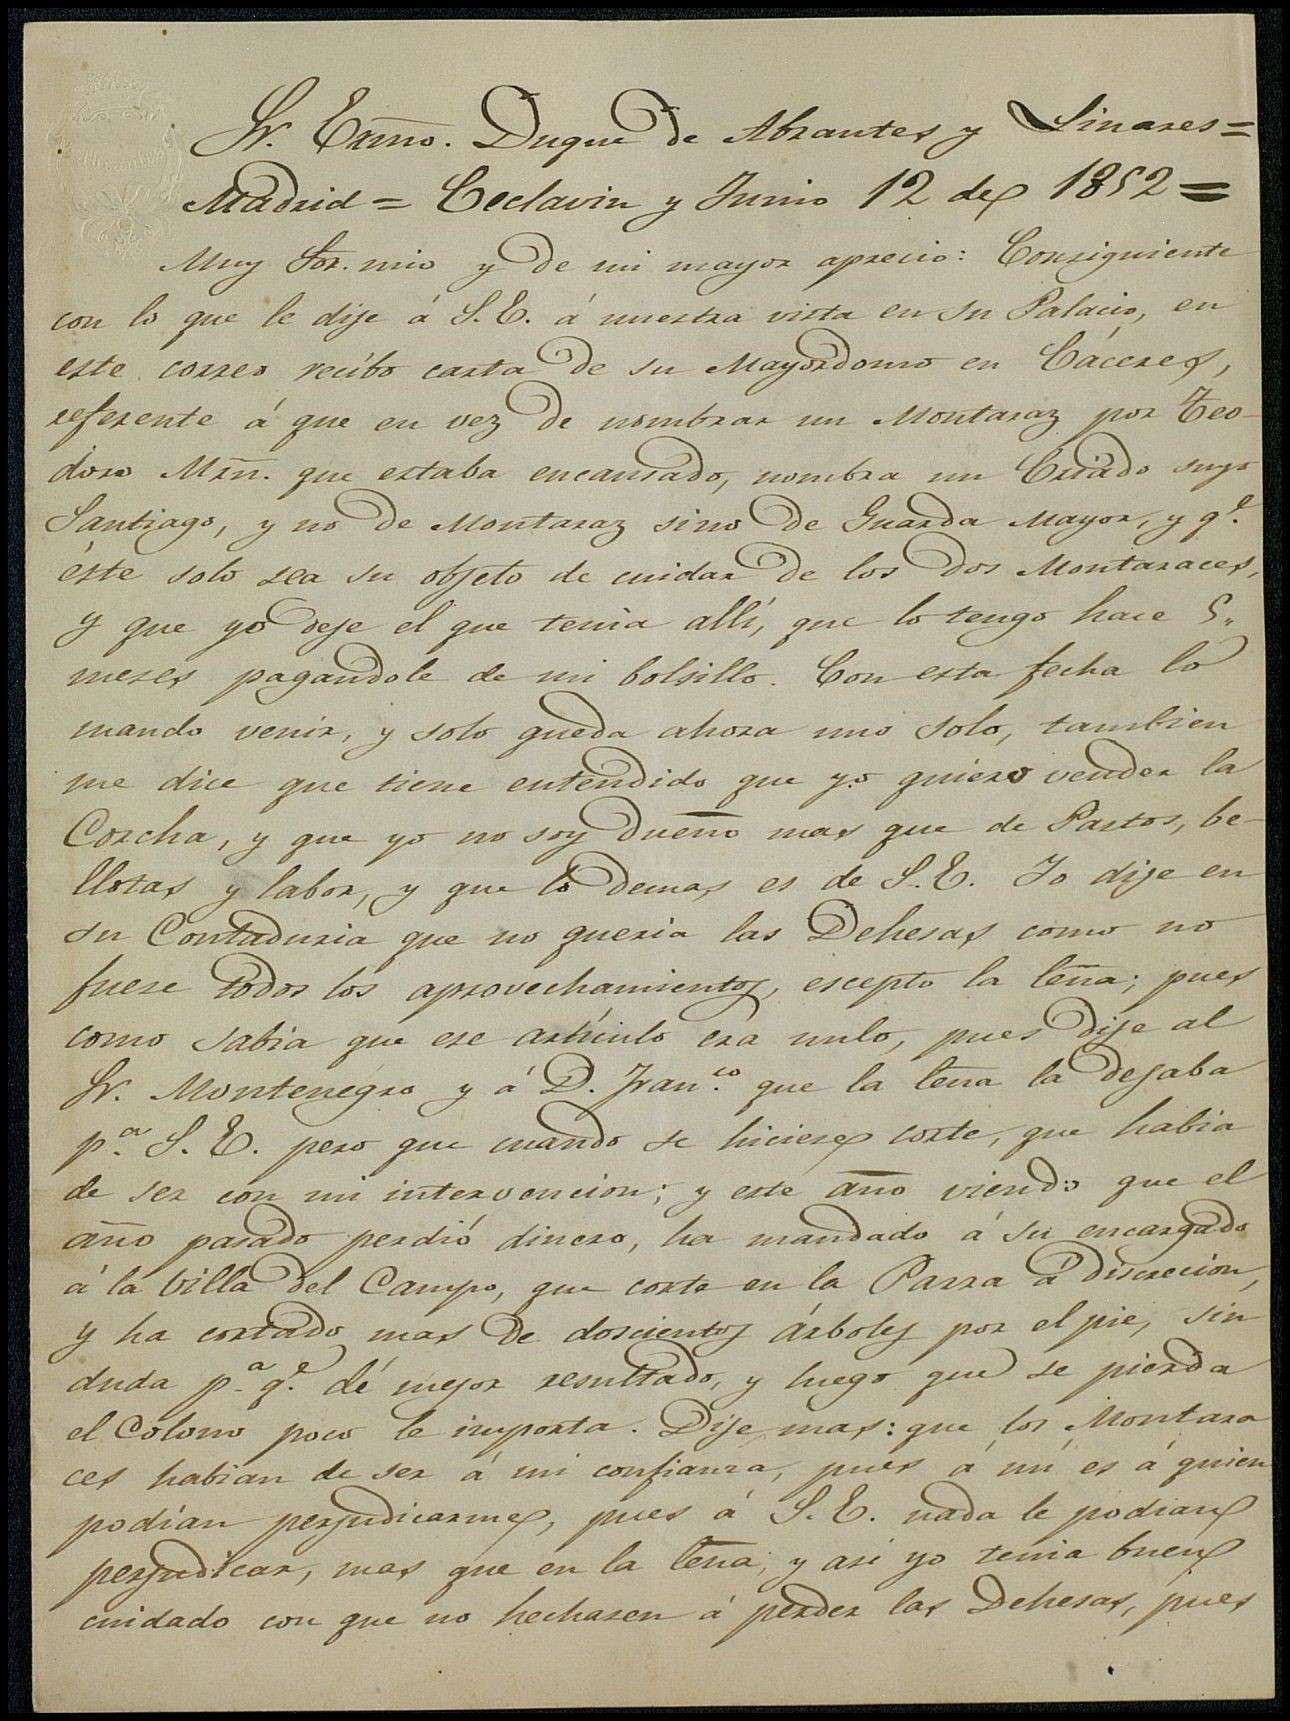 Sr. Exmo. Duque de Abrantes y Linares=
Madrid= Ceclavin y Junio 12 de 1852=
Muy Sor. mio y de mi mayor aprecio: Consiguiente
con lo que le dije á S.E. á nuestra vista en su Palacio, en
este correo recíbo carta de su Mayordomo en Cáceres,
referente á que en vez de nombrar un Montaraz por Teo-
doro Mrn. que estaba encausado, nombra un Criado suyo
Santiago, y no de Montaraz sino de Guarda Mayor, y qe.
éste solo sea su objeto de cuidar de los dos Montaraces,
y que yo deje el que tenia allí, que lo tengo hace 5"
meses pagandole de mi bolsillo. Con esta fecha lo
mando venir, y solo queda ahora uno solo, tambien
me dice que tiene entendido que yo quiero vender la
Corcha, y que yo no soy dueño mas que de Pastos, be-
llotas y labor, y que lo demas es de S.E. Yo dije en
su Contaduria que no queria las Dehesas como no
fuese todos los aprovechamientos, escepto la leña; pues
como sabia que ese artículo era nulo, pues dije al
Sr. Montenegro y á D. Franco. que la leña la dejaba
pa. S.E. pero que cuando se hiciese corte, que habia
de ser con mi intervencion; y este año viendo que el
año pasado perdió dinero, ha mandado á su encargado
á la Villa del Campo, que corte en la Parra á discrecion,
y ha cortado mas de doscientos árboles por el pie, sin
duda pa. qe. dé mejor resultado, y luego que se pierda
el Colono poco le importa. Dije mas: que los Montara
ces habian de ser á mi confianza, pues á mí és á quien
podían perjudicarme, pues á S.E. nada le podian
perjudicar, mas que en la leña; y asi yo tenia buen
cuidado con que no hechasen á perder las Dehesas, pues